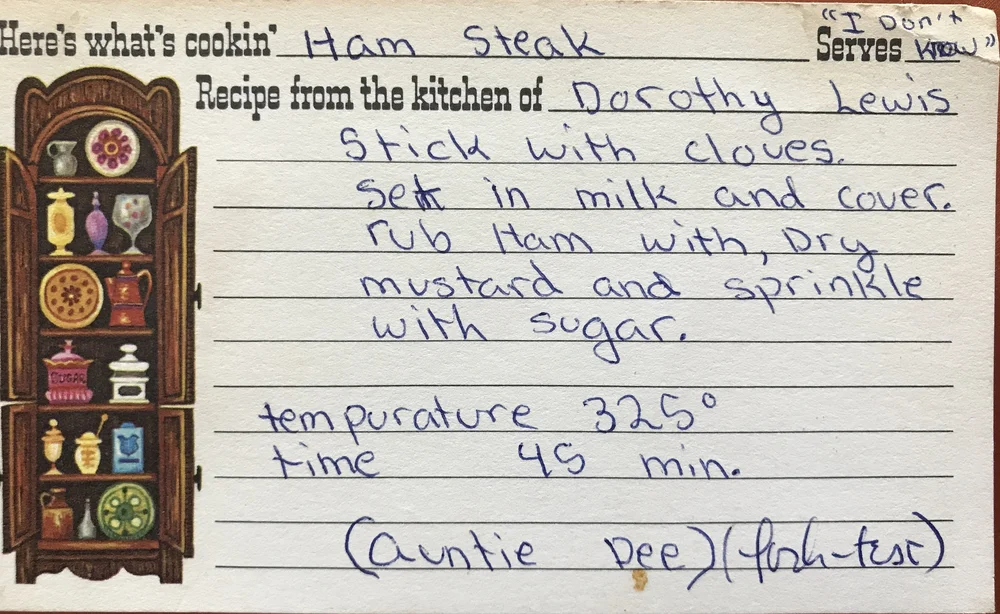 Here's what's cookin' Ham Steak Serves "I Don't Know"
Recipe from the kitchen of Dorothy Lewis
Stick with cloves.
Set in milk and cover.
rub Ham with, Dry
mustard and sprinkle
with sugar.
SUGAR
tempurature 325°
time 45 min.
(Auntie Dee) (fork-test)